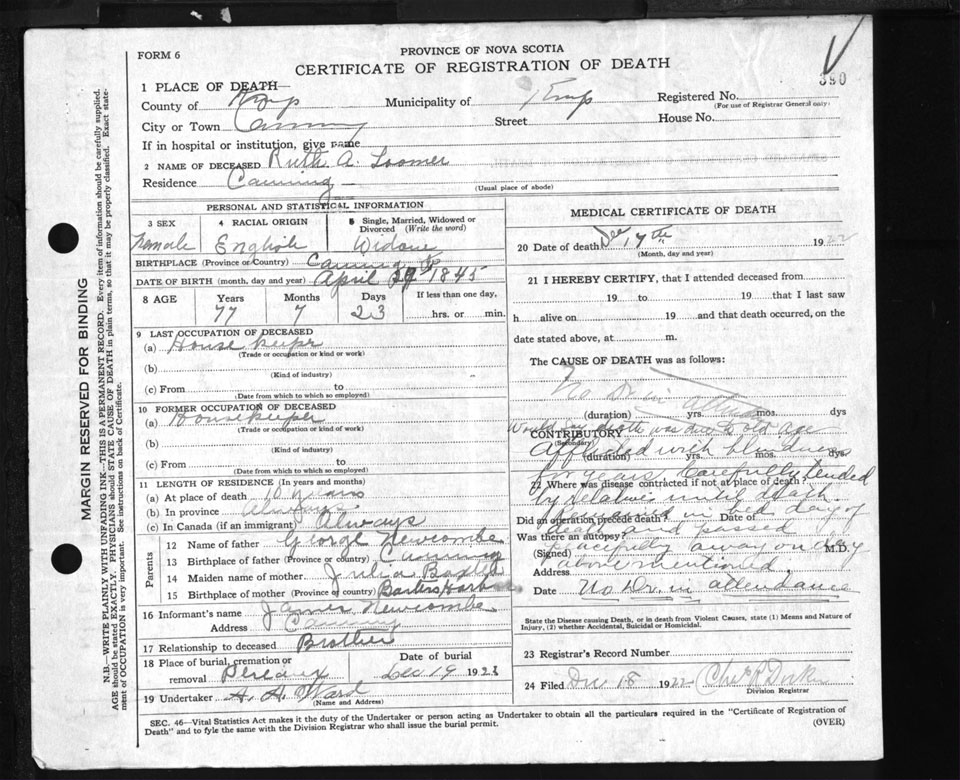 PROVINCE OF NOVA SCOTIA
FORM 6
CERTIFICATE OF REGISTRATION OF DEATH
390
1 PLACE OF DEATH—
County of Kings Municipality of Kings Registered No.
(For use of Registrar General only)
City or Town Canning Street House No.
If in hospital or institution, give name
2 NAME OF DECEASED Ruth A. Loomer
Residence Canning
(Usual place of abode)
PERSONAL AND STATISTICAL INFORMATION
3 SEX 4 RACIAL ORIGIN 5 Single, Married, Widowed or Divorced (Write the word)
Female English Widow
BIRTHPLACE (Province or Country) Canning
DATE OF BIRTH (month, day and year) April 1845
8 AGE Years Months Days If less than one day,
77 7 23 hrs. or min.
9 LAST OCCUPATION OF DECEASED
(a) Housekeeper
(Trade or occupation or kind or work)
(b)
(Kind of industry)
(c) From to
(Date from which to which so employed)
10 FORMER OCCUPATION OF DECEASED
(a) Housekeeper
(Trade or occupation or kind of work)
(b)
(Kind of industry)
(c) From to
(Date from which to which so employed)
11 LENGTH OF RESIDENCE (In years and months)
(a) At place of death 10 years
(b) In province Always
(c) In Canada (if an immigrant) Always
Parents
12 Name of father George Newcombe
13 Birthplace of father (Province or country) Canning
14 Maiden name of mother Julia
15 Birthplace of mother (Province or country)
16 Informant's name James Newcombe
Address Canning
17 Relationship to deceased Brother
18 Place of burial, cremation or removal Date of burial
Pereaux Dec 19 1922
19 Undertaker A. A. Ward
(Name and Address)
MEDICAL CERTIFICATE OF DEATH
20 Date of death Dec 17th 1922
(Month, day and year)
21 I HEREBY CERTIFY, that I attended deceased from
19 to 19 that I last saw
h alive on 19 and that death occurred, on the
date stated above, at m.
The CAUSE OF DEATH was as follows:
No Dr. in
(duration) yrs. mos. dys
Would say death was due to old age
CONTRIBUTORY
(Secondary)
Afflicted with blindness
(duration) yrs. mos. dys.
years Carefully tended
22 Where was disease contracted if not at place of death?
by relatives until death.
Did an operation precede death? Date of
Remained in bed day of
Was there an autopsy?
death and passed
(Signed) M.D.
peacefully away on day
Address
above mentioned.
Date
No Dr. in attendance
State the Disease causing Death, or in death from Violent Causes, state (1) Means and Nature of
Injury, (2) whether Accidental, Suicidal or Homicidal.
23 Registrar's Record Number
24 Filed Dec 18 1922 Chas R
Division Registrar
SEC. 46—Vital Statistics Act makes it the duty of the Undertaker or person acting as Undertaker to obtain all the particulars required in the "Certificate of Registration of
Death" and to fyle the same with the Division Registrar who shall issue the burial permit.
(OVER)
MARGIN RESERVED FOR BINDING
N.B.—WRITE PLAINLY WITH UNFADING INK—THIS IS A PERMANENT RECORD. Every item of information should be carefully supplied.
AGE should be stated EXACTLY. PHYSICIANS should STATE CAUSE OF DEATH in plain terms, so that it may be properly classified. Exact statement of OCCUPATION is very important. See instructions on back of Certificate.